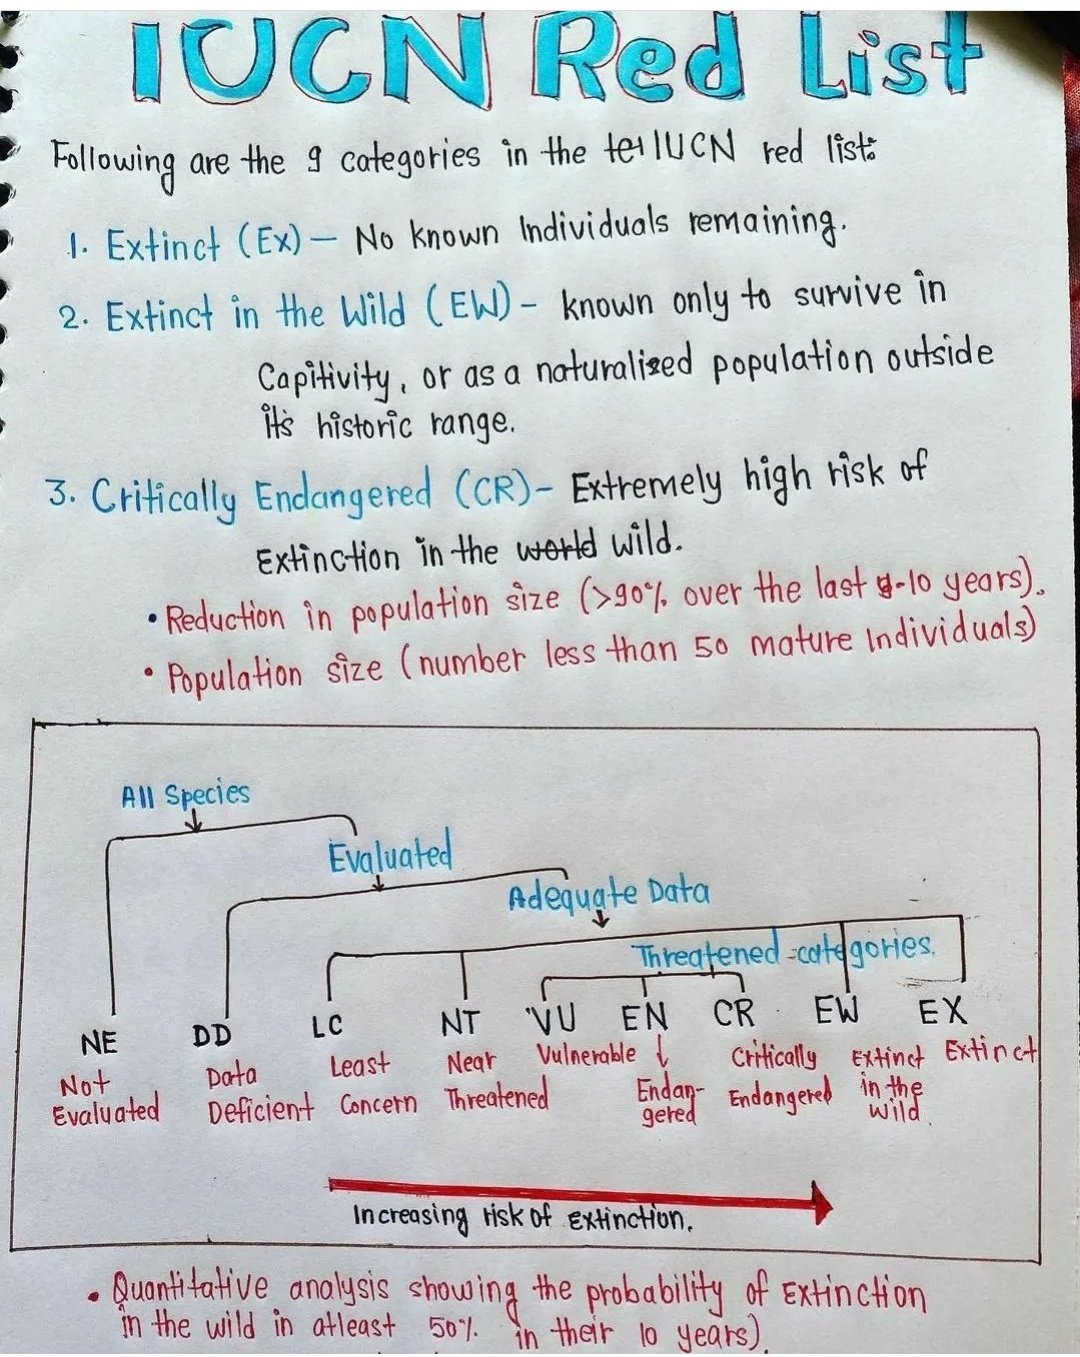 IUCN Red List
Following are the 9 categories in the IUCN red list:
1. Extinct (Ex) – No known Individuals remaining.
2. Extinct in the Wild (EW) – known only to survive in
Capitivity, or as a naturalised population outside
its historic range.
3. Critically Endangered (CR) – Extremely high risk of
Extinction in the world wild.
• Reduction in population size (>90% over the last -10 years).
• Population size (number less than 50 mature Individuals)
All Species
Evaluated
Adequate Data
Threatened-categories.
NE DD LC NT VU EN CR EW EX
Not Evaluated
Data Deficient
Least Concern
Near Threatened
Vulnerable
Endan-
gered
Critically Endangered
Extinct in the wild.
Extinct
Increasing risk of extinction.
• Quantitative analysis showing the probability of Extinction
in the wild in atleast 50% in their 10 years).